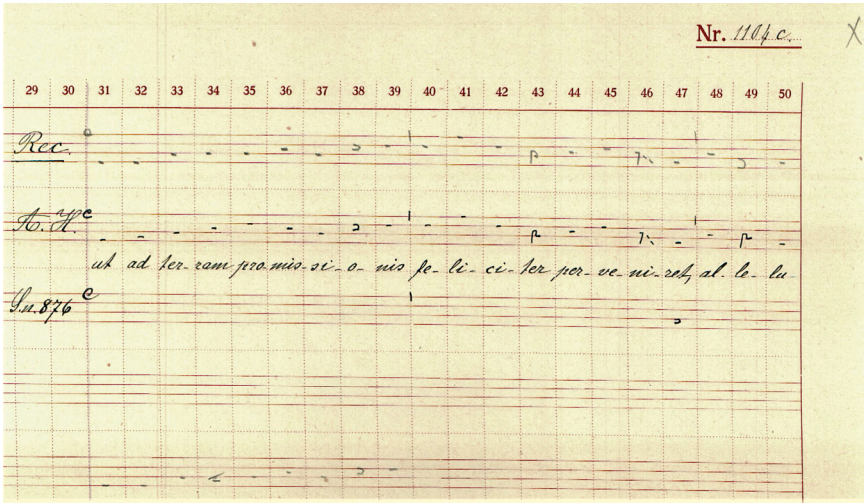 Nr. 1104 c.
X
29 30 31 32 33 34 35 36 37 38 39 40 41 42 43 44 45 46 47 48 49 50
Rec.
A. H.
ut ad ter-ram pro mis-si-o-nis fe-li-ci-ter per-ve-ni-ret, al-le-lu
S.n. 876